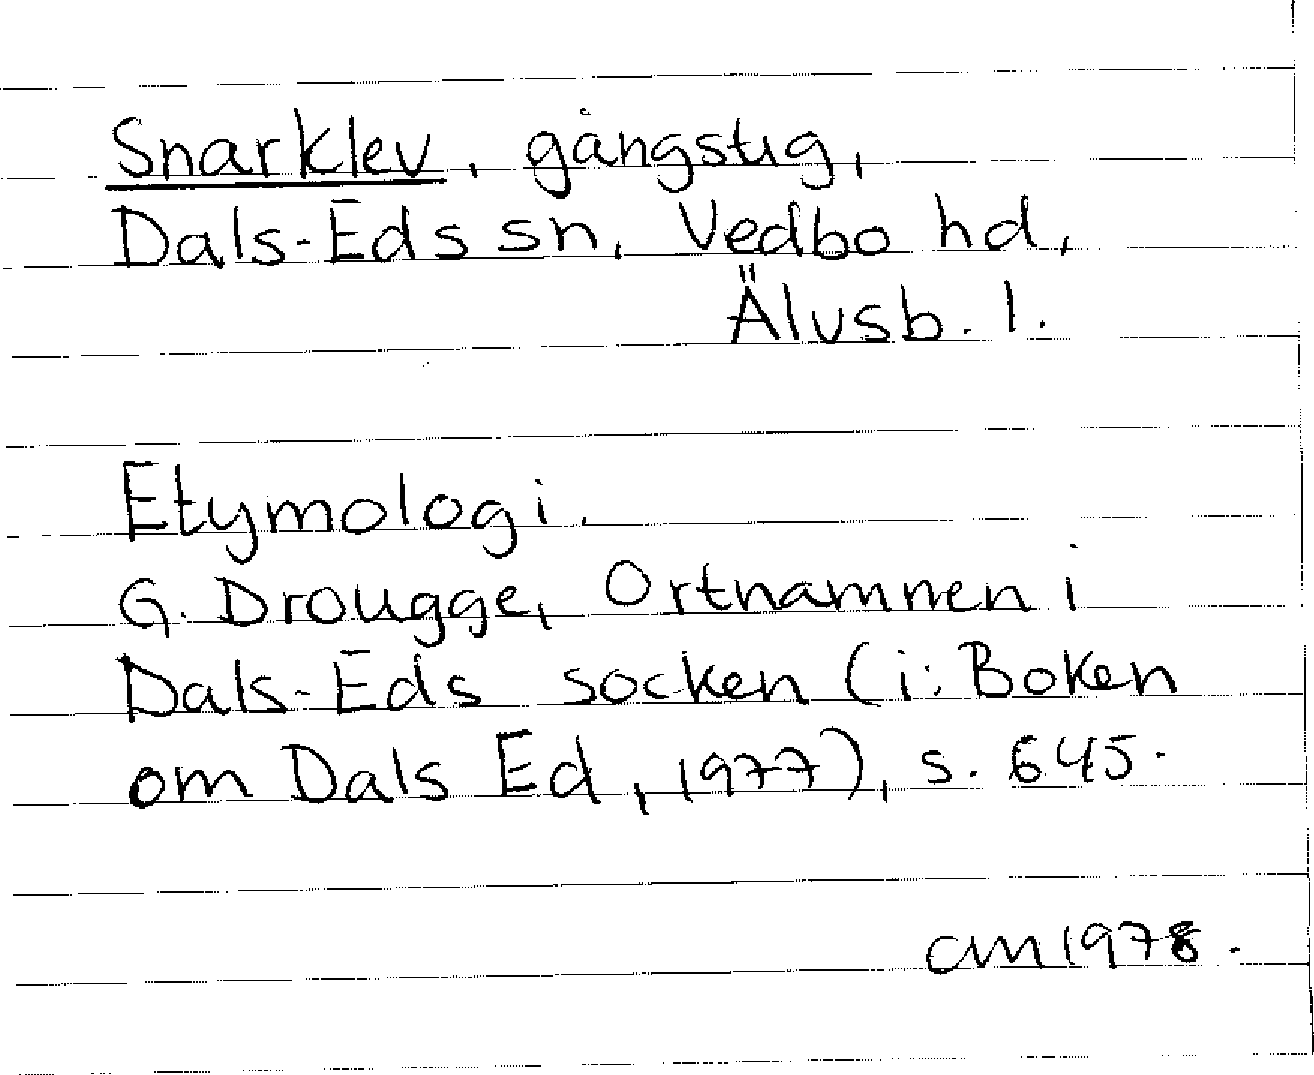 Snarklev, gångstig,
Dals-Eds sn, Vedbo hd,
Älvsb. l.
Etymologi.
G. Drougge, Ortnamnen i
Dals-Eds socken (i: Boken
om Dals Ed, 1977), s. 645.
CM 1978.